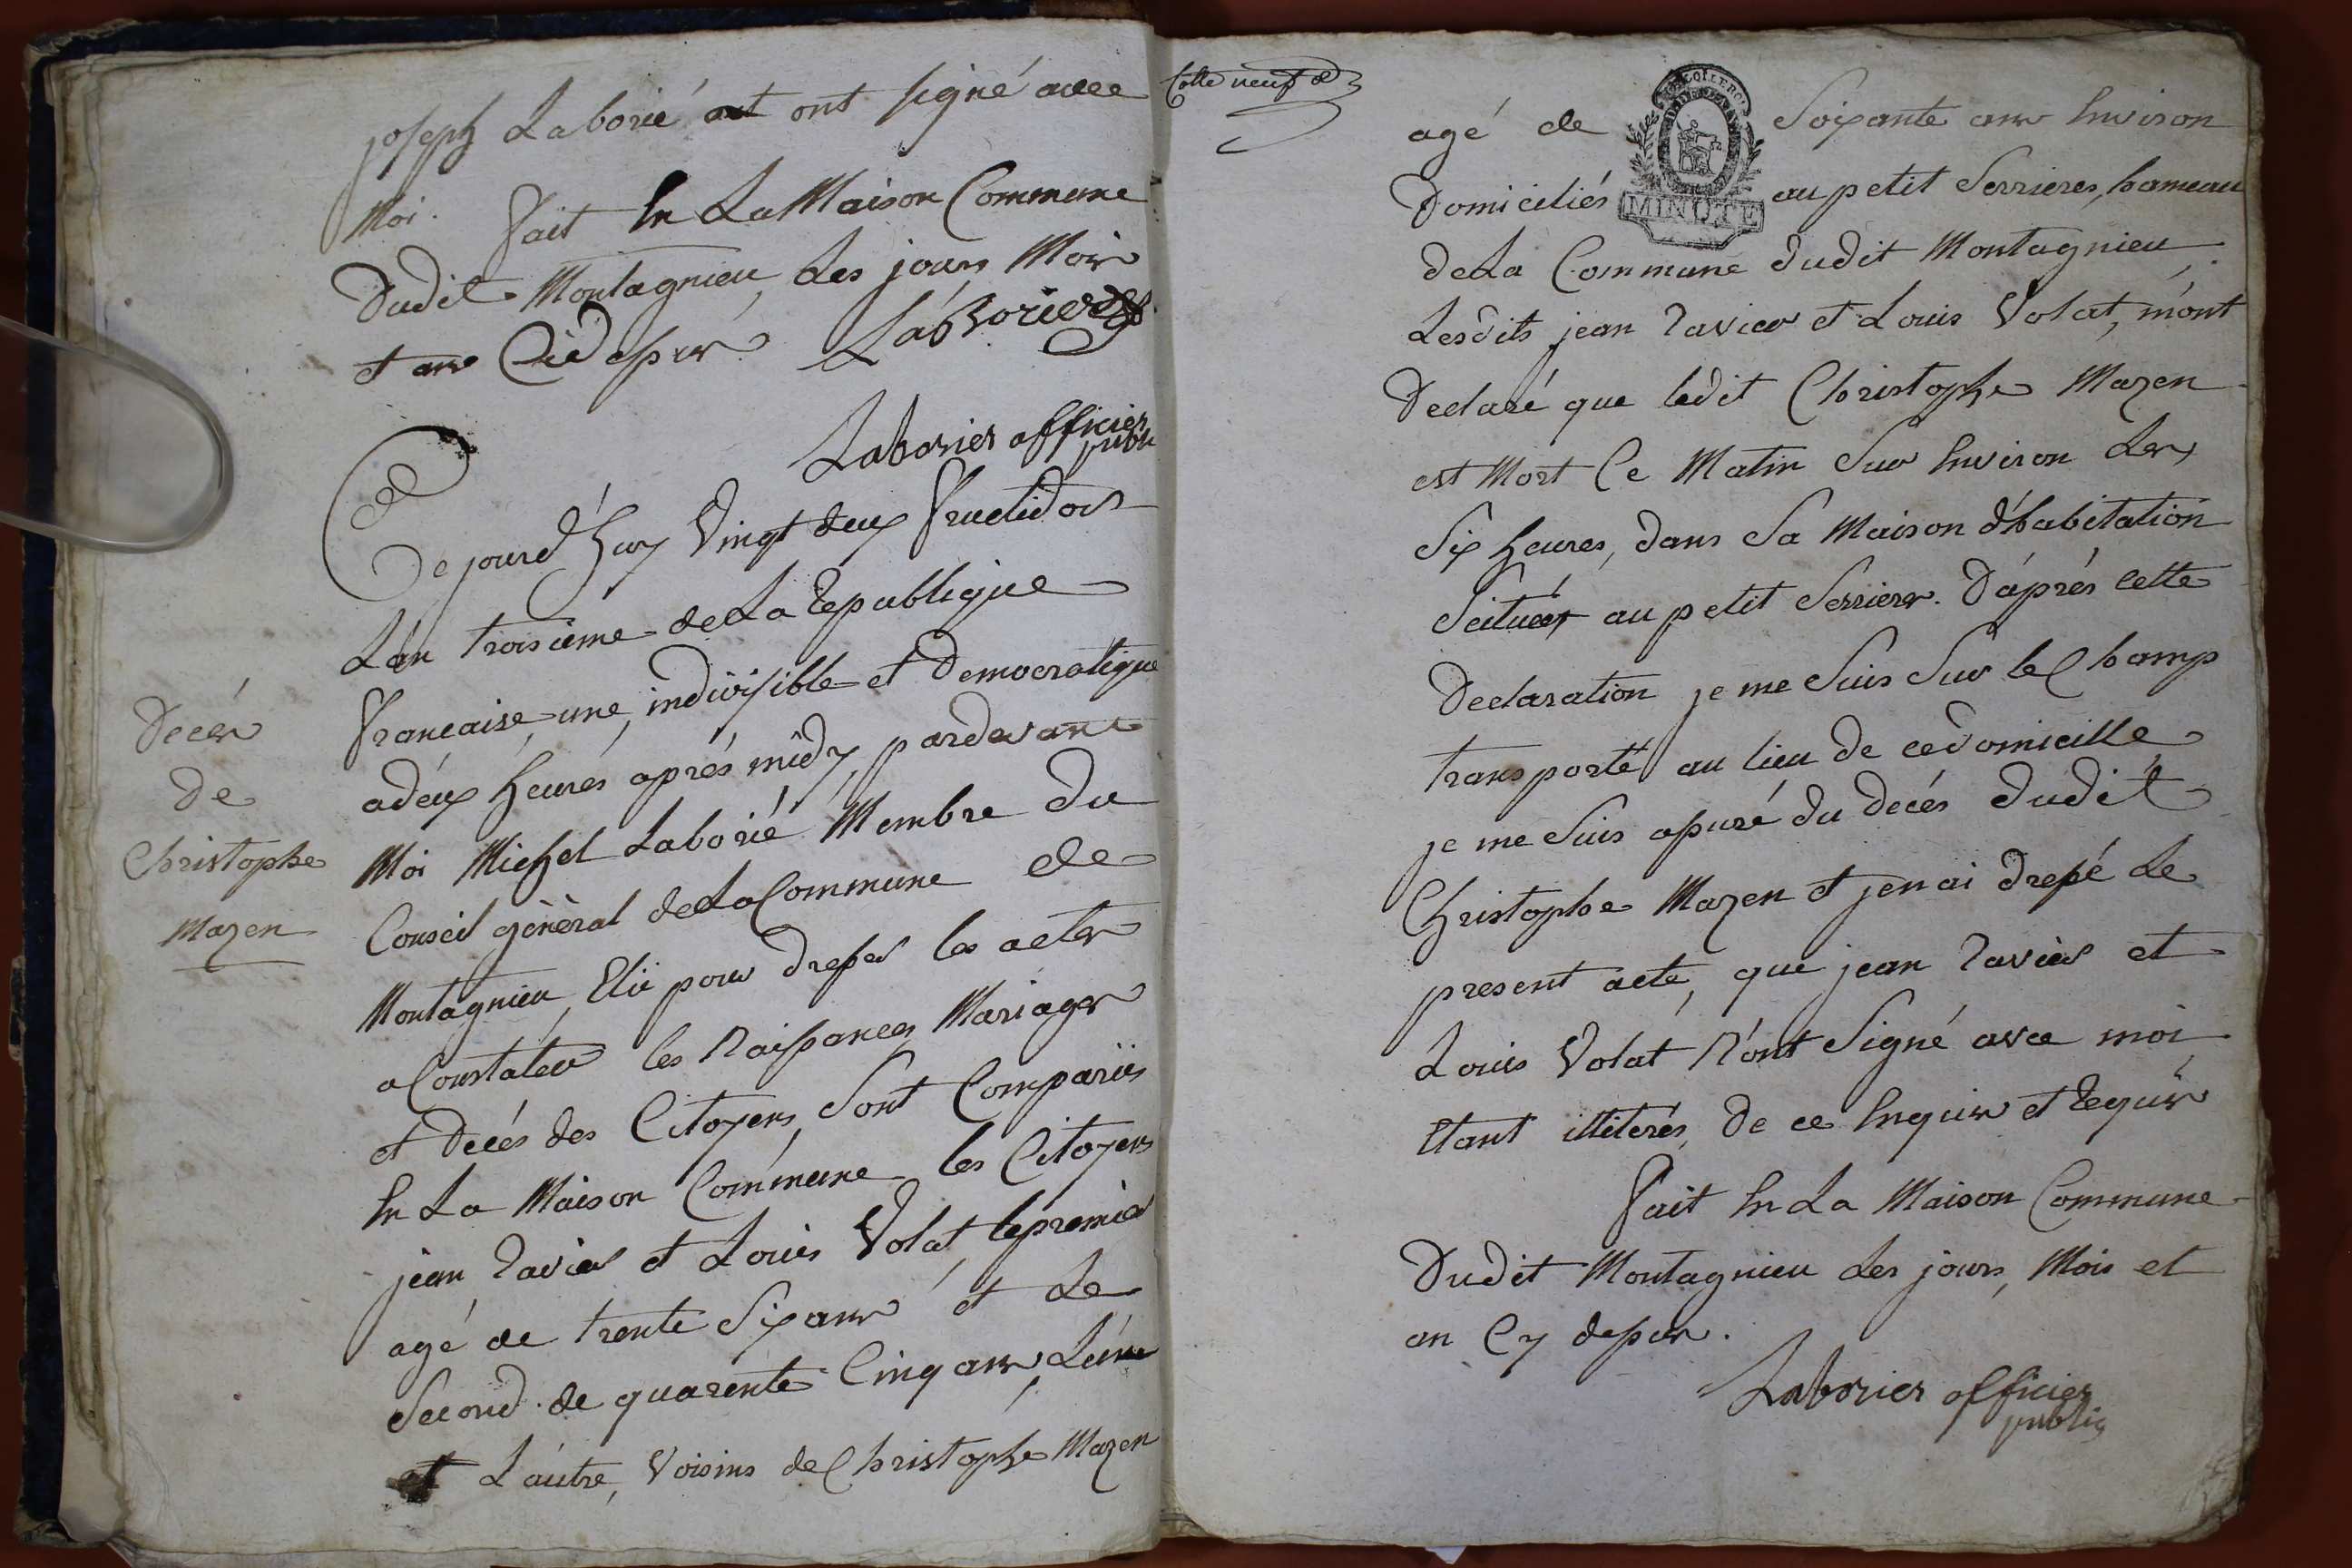 joseph Laborié et ont signé avec
Moi. Fait En La Maison Commune
Dudit Montagnieu, Les jours, Mois
et ans Cidessus. Laborier
Laborier officier
publi
Cejourd'huy Vingt deux Fructidor
L'an troisième de La Republique
Francaise, une, indivisible et Democratique
adéux heurés aprés midy, pardevant
Moi Michel Laborié Membre du
Conseil géneral de La Commune de
Montagnieu, Elu pour dresser les actes
a Constater les Naissances, Mariages
et Decés des Citoyens, Sont Comparüs
En La Maison Commune les Citoyens
jean Ravier et Louis Volat, le premier
agé de trente Six ans et Le
Second de quarente Cinq ans, L'un
et L'autre, Voisins de Christophe Mazen
Decés
De
Christophe
Mazen
Cotte neuf
agé de Soixante ans Environ
Domiciliés au petit Serrieres, hameau
MINUTE
de La Commune dudit Montagnieu,
Lesdits jean Ravier et Louis Volat, m'ont
Declaré que ledit Christophe Mazen
est Mort Ce Matin Sur Environ Les
Six heures, dans Sa Maison d'habitation
Scituée au petit Serrieres. D'aprés cette
Declaration je me Suis Sur le Champ
transporté au lieu de ce domicille
je me Suis assuré du Decés dudit
Christophe Mazen et j'en ai dressé Le
present acte, que jean Ravier et
Louis Volat N'ont Signé avec moi
Etant illiterés, De ce Enquis et Requis
Fait En La Maison Commune
Dudit Montagnieu Les jours, Mois et
an Cy dessus.
Laborier officier
public